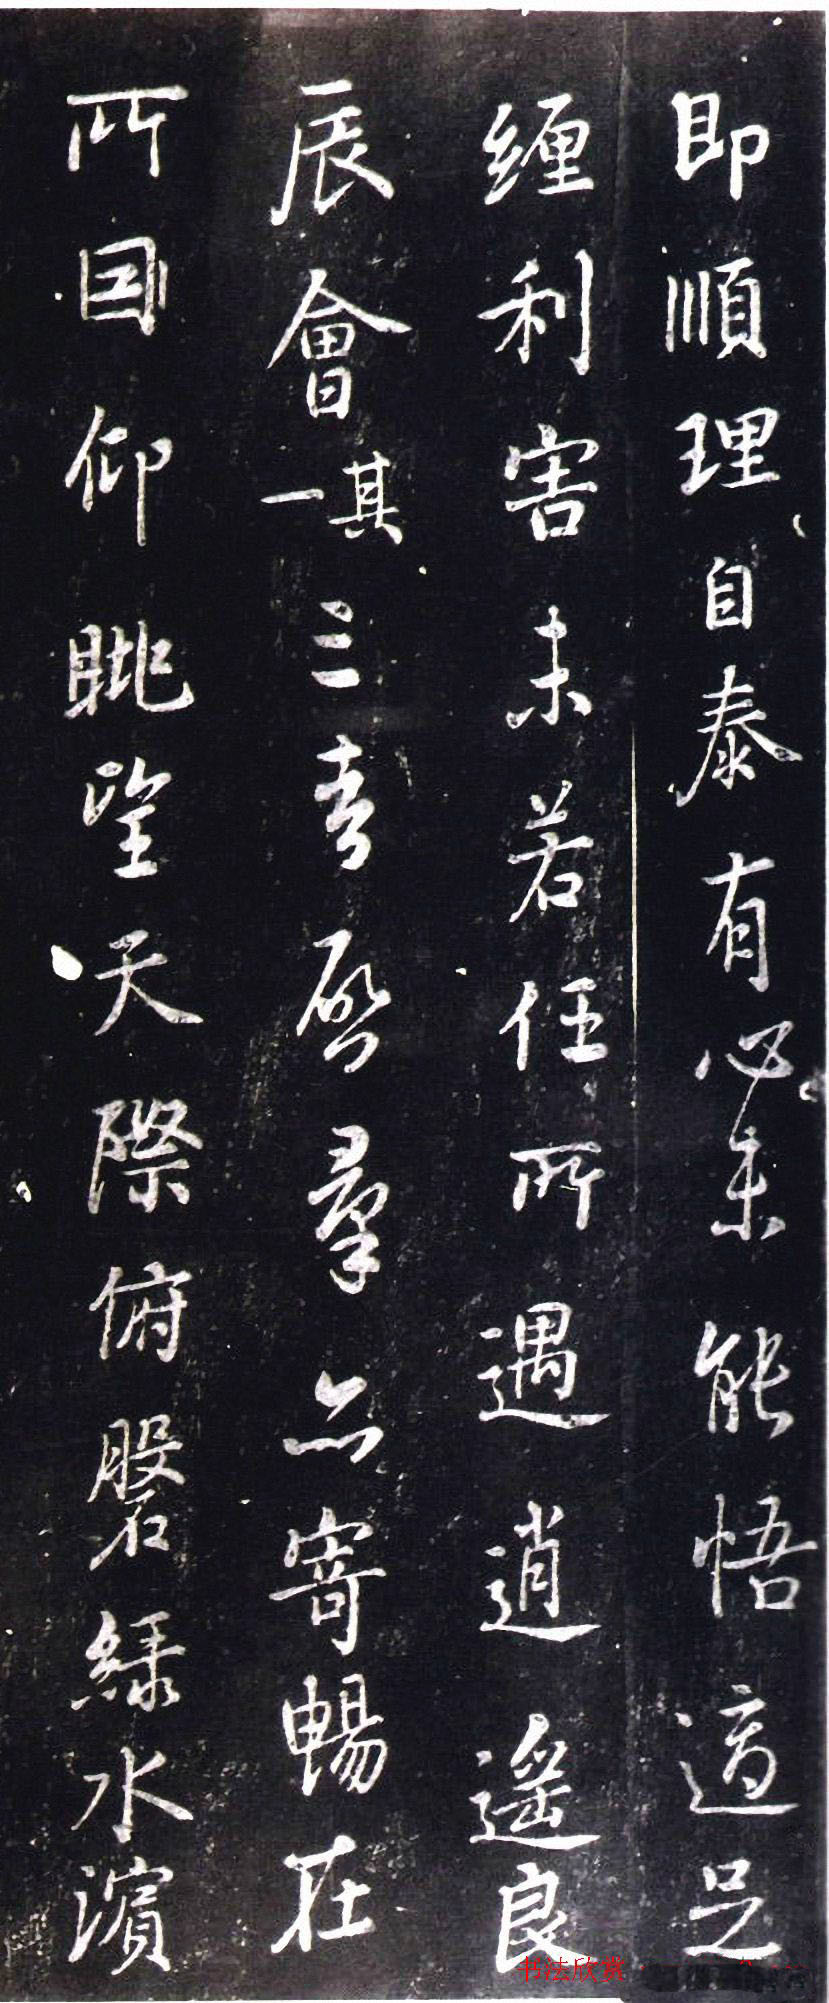 即順理自泰有心未能悟適足
纏利害未若任所遇逍遥良
辰會其一三春啓羣品寄暢在
所因仰眺望天際俯磐緑水濱
书法欣赏